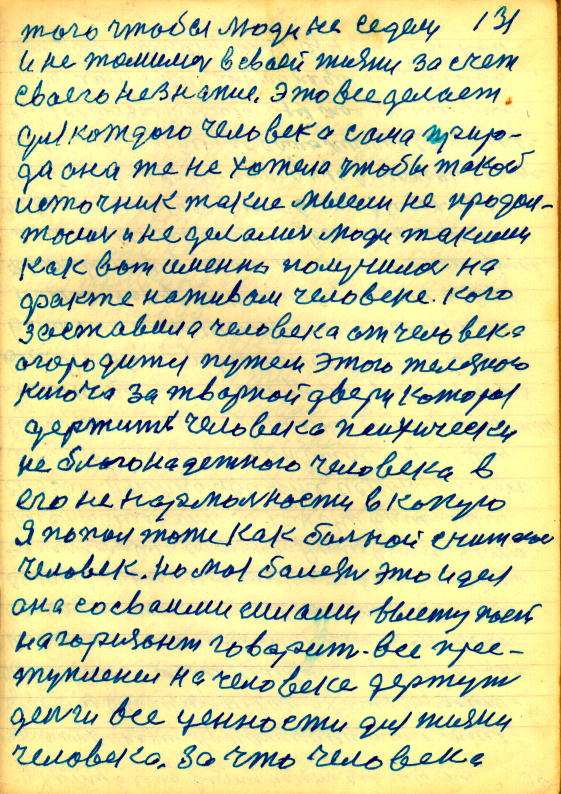 того чтобы люди не седели 131
и не томилис в своей жизни за счет
своего незнание. Это все делает
для кождого человека сама приро-
да она же не хотела чтобы такой
источник такие мысли не продол-
жолис и не делалис люди такими
как вот именно получилос на
факте на живом человеке. Кого
заставила человека от человека
огородитсе путем этого железного
ключа затворной двери которое
держить человека психически
не благонадежного человека в
его не нармолности в которую
Я попал тоже как болной считаюс
человек. но моя болезн это идея
она со своими силами выступает
на горизонт говорит. все прес-
тупление на человеке держут
денги все ценности для жизни
человека. За что человека